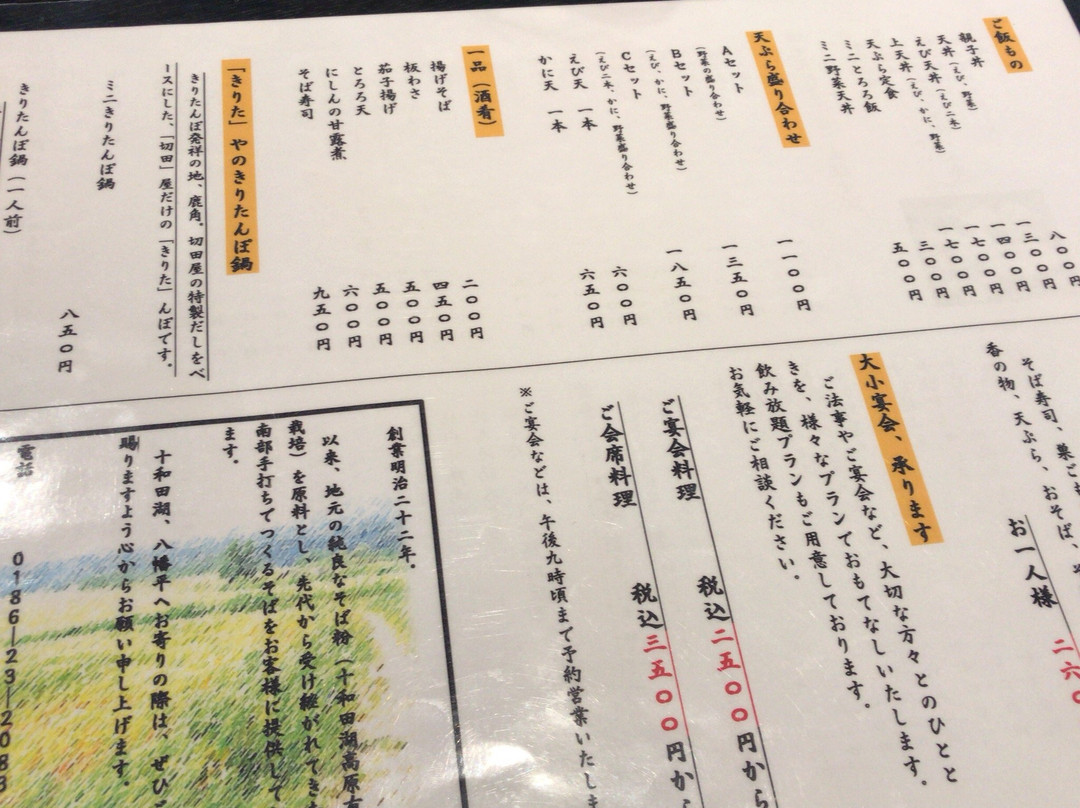 ご飯もの
親子丼 八〇〇円
天丼（えび、野菜） 一三〇〇円
えび天丼（えび二本） 一四〇〇円
上天丼（えび、かに、野菜） 一七〇〇円
天ぷら定食 一七〇〇円
ミニとろろ飯 三〇〇円
ミニ野菜天丼 五〇〇円
天ぷら盛り合わせ
Aセット 一一〇〇円
（野菜の盛り合わせ）
Bセット 一三五〇円
（えび、かに、野菜盛り合わせ）
Cセット 一八五〇円
（えび二本、かに、野菜盛り合わせ）
えび天 一本 六〇〇円
かに天 一本 六五〇円
一品（酒肴）
揚げそば 二〇〇円
板わさ 四五〇円
茄子揚げ 五〇〇円
とろろ天 五〇〇円
にしんの甘露煮 六〇〇円
そば寿司 九五〇円
「きりた」やのきりたんぽ鍋
きりたんぽ発祥の地、鹿角。切田屋の特製だしをベ
ースにした、「切田」屋だけの「きりた」んぽです。
ミニきりたんぽ鍋 八五〇円
きりたんぽ鍋（一人前）
そば寿司、巣ごも
香の物、天ぷら、おそば、
お一人様 二六〇
大小宴会、承ります
ご法事やご宴会など、大切な方々とのひとと
きを、様々なプランでおもてなしいたします。
飲み放題プランもご用意しております。
お気軽にご相談ください。
ご宴会料理 税込二五〇〇円から
ご会席料理 税込三五〇〇円から
※ご宴会などは、午後九時頃まで予約営業いたしま
創業明治二十二年。
以来、地元の純良なそば粉（十和田湖高原
栽培）を原料とし、先代から受け継がれてき
南部手打ちでつくるそばをお客様に提供して
ます。
十和田湖、八幡平へお寄りの際は、ぜひ
賜りますよう心からお願い申し上げます。
電話 0186―23―2083